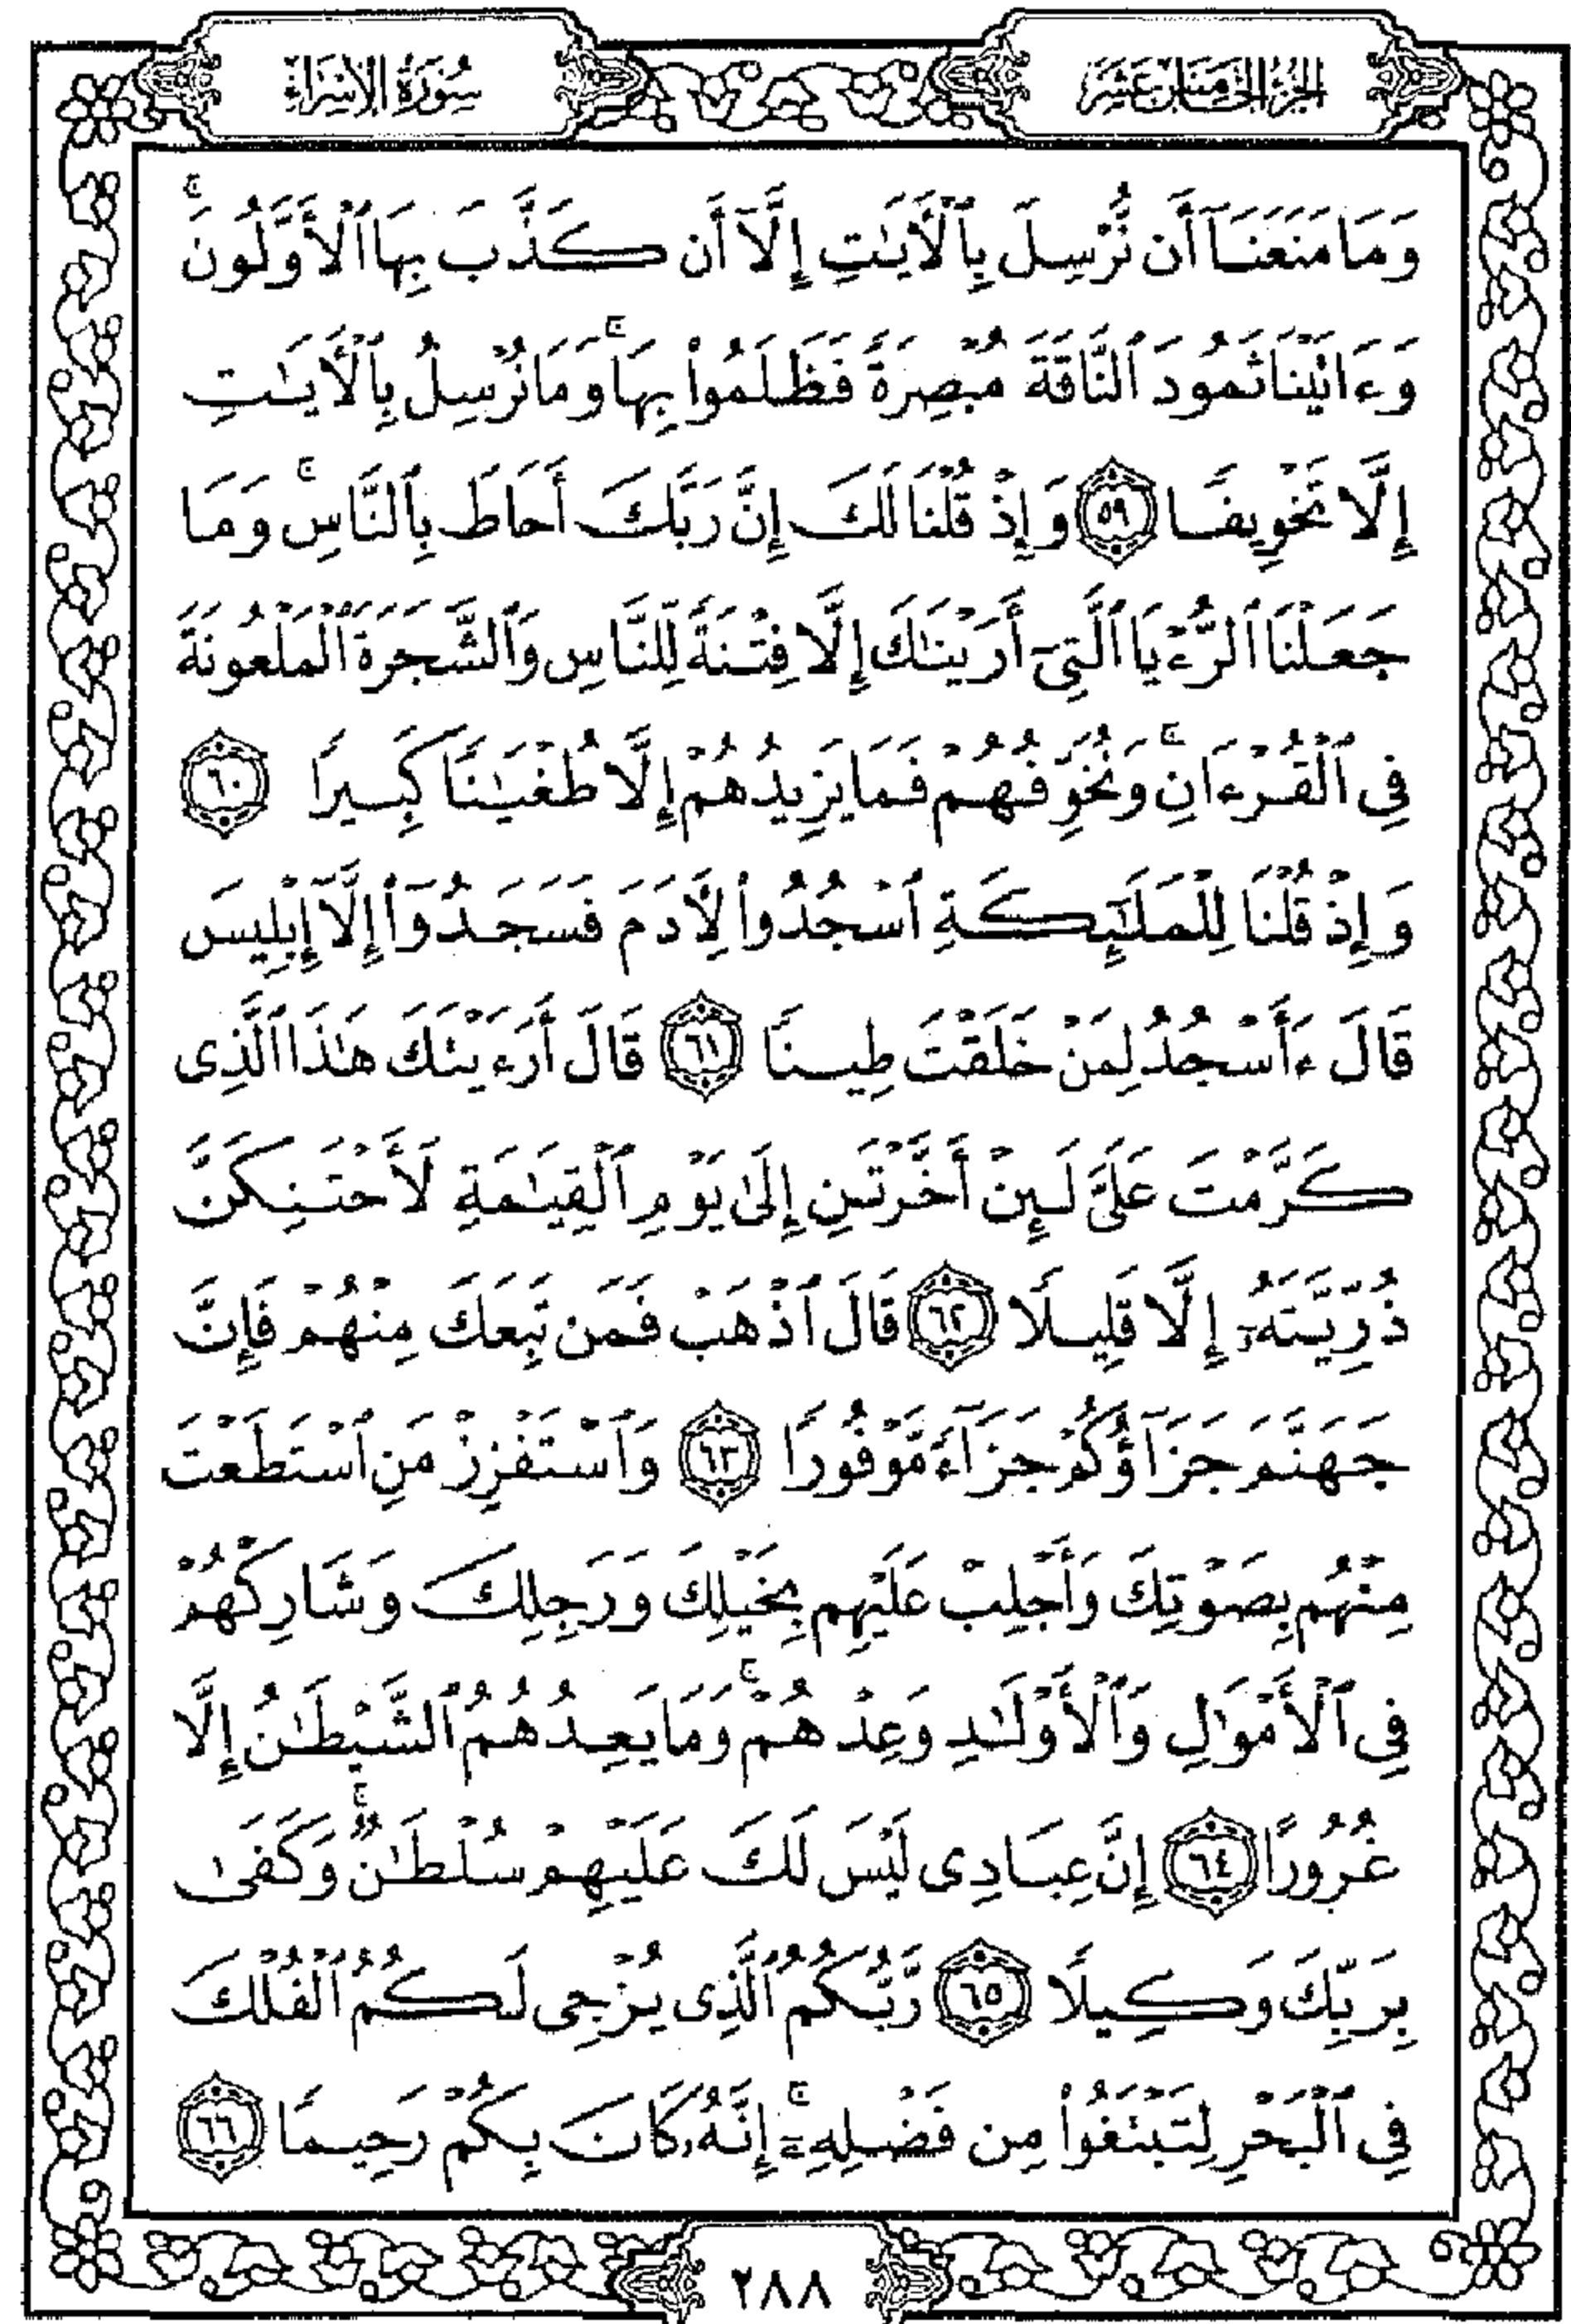 الجزء الخامس عشر
سُورَةُ الإِسْرَاءِ
وَمَا مَنَعَنَآ أَن نُّرْسِلَ بِٱلْأَيَٰتِ إِلَّآ أَن كَذَّبَ بِهَا ٱلْأَوَّلُونَۚ
وَءَاتَيْنَا ثَمُودَ ٱلنَّاقَةَ مُبْصِرَةً فَظَلَمُوا۟ بِهَاۚ وَمَا نُرْسِلُ بِٱلْأَيَٰتِ
إِلَّا تَخْوِيفًا ٥٩ وَإِذْ قُلْنَا لَكَ إِنَّ رَبَّكَ أَحَاطَ بِٱلنَّاسِۚ وَمَا
جَعَلْنَا ٱلرُّءْيَا ٱلَّتِىٓ أَرَيْنَٰكَ إِلَّا فِتْنَةً لِّلنَّاسِ وَٱلشَّجَرَةَ ٱلْمَلْعُونَةَ
فِى ٱلْقُرْءَانِۚ وَنُخَوِّفُهُمْ فَمَا يَزِيدُهُمْ إِلَّا طُغْيَٰنًا كَبِيرًا ٦٠
وَإِذْ قُلْنَا لِلْمَلَٰٓئِكَةِ ٱسْجُدُوا۟ لِأَدَمَ فَسَجَدُوٓا۟ إِلَّآ إِبْلِيسَ
قَالَ ءَأَسْجُدُ لِمَنْ خَلَقْتَ طِينًا ٦١ قَالَ أَرَءَيْتَكَ هَٰذَا ٱلَّذِى
كَرَّمْتَ عَلَىَّ لَئِنْ أَخَّرْتَنِ إِلَىٰ يَوْمِ ٱلْقِيَٰمَةِ لَأَحْتَنِكَنَّ
ذُرِّيَّتَهُۥٓ إِلَّا قَلِيلًا ٦٢ قَالَ ٱذْهَبْ فَمَن تَبِعَكَ مِنْهُمْ فَإِنَّ
جَهَنَّمَ جَزَآؤُكُمْ جَزَآءً مَّوْفُورًا ٦٣ وَٱسْتَفْزِزْ مَنِ ٱسْتَطَعْتَ
مِنْهُم بِصَوْتِكَ وَأَجْلِبْ عَلَيْهِم بِخَيْلِكَ وَرَجِلِكَ وَشَارِكْهُمْ
فِى ٱلْأَمْوَٰلِ وَٱلْأَوْلَٰدِ وَعِدْهُمْۚ وَمَا يَعِدُهُمُ ٱلشَّيْطَٰنُ إِلَّا
غُرُورًا ٦٤ إِنَّ عِبَادِى لَيْسَ لَكَ عَلَيْهِمْ سُلْطَٰنٌۚ وَكَفَىٰ
بِرَبِّكَ وَكِيلًا ٦٥ رَّبُّكُمُ ٱلَّذِى يُزْجِى لَكُمُ ٱلْفُلْكَ
فِى ٱلْبَحْرِ لِتَبْتَغُوا۟ مِن فَضْلِهِۦٓۚ إِنَّهُۥ كَانَ بِكُمْ رَحِيمًا ٦٦
٢٨٨